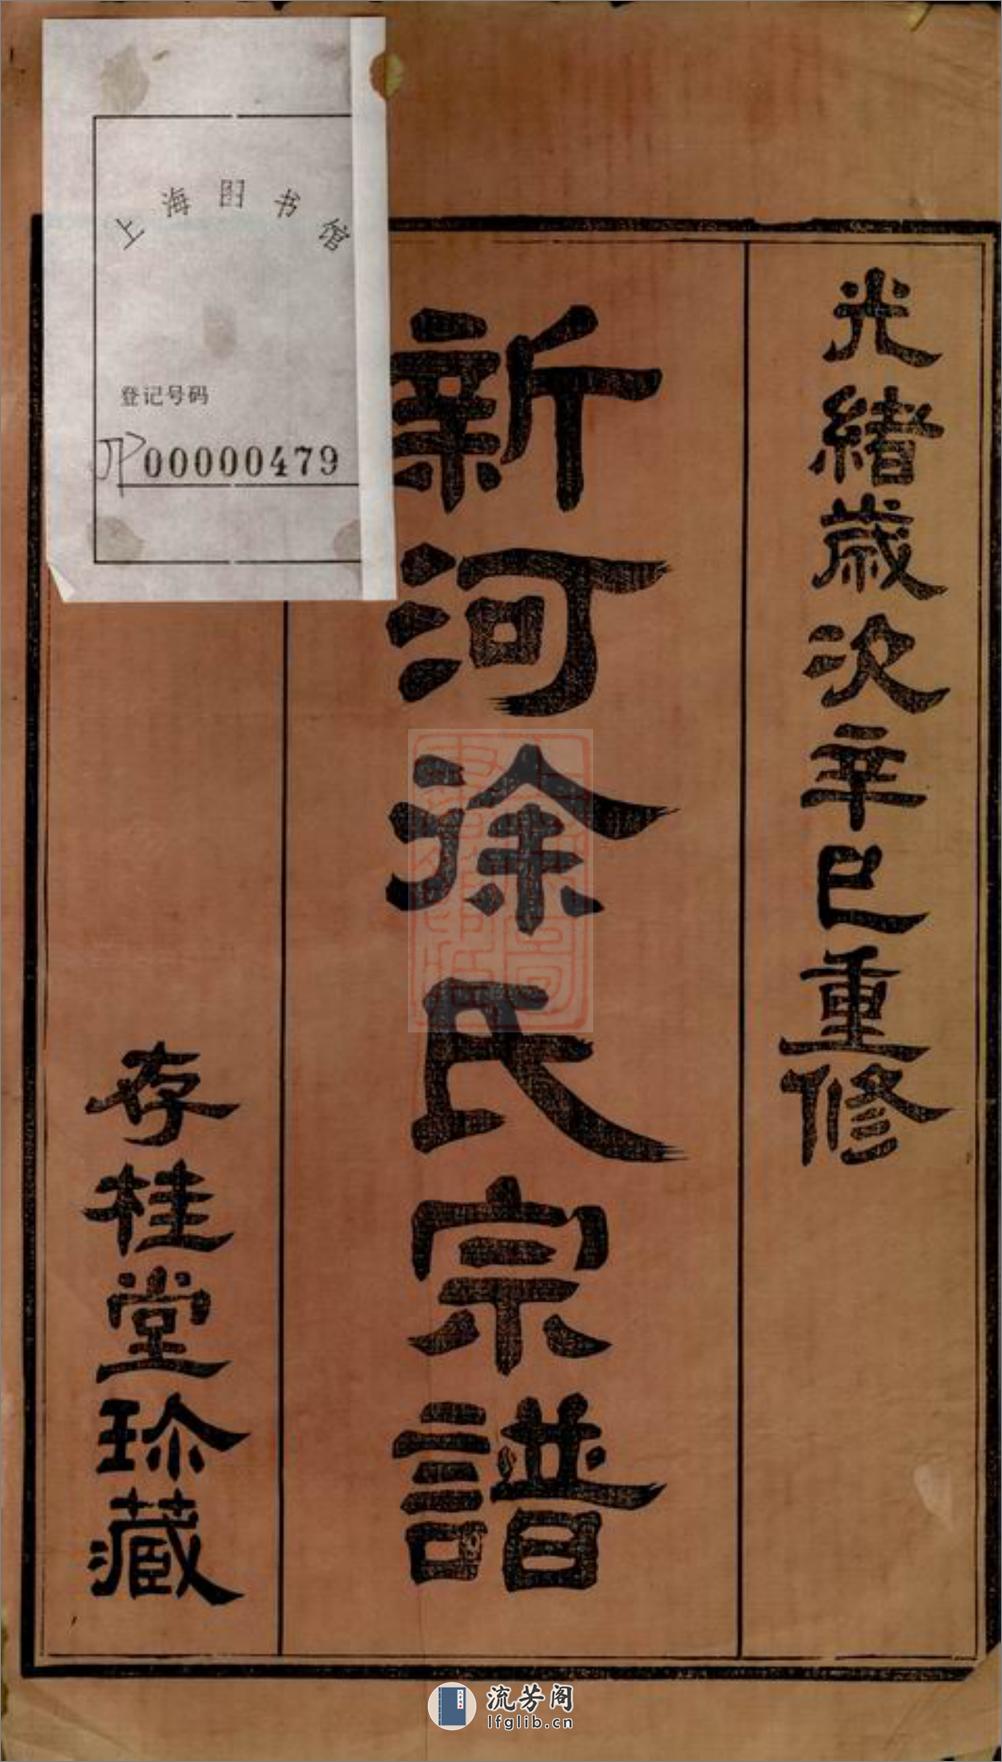 光緒歲次辛巳重修
新河徐氏宗譜
存桂堂珍藏
上海图书馆
登记号码
00000479
流芳阁
lfglib.cn